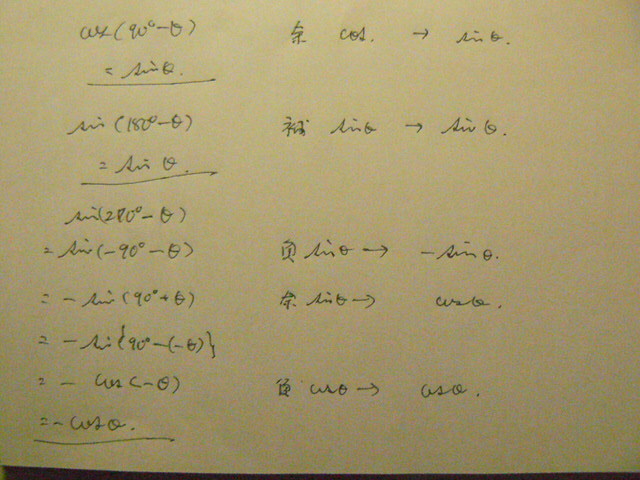 cos(90°-θ) 余 cos. → sinθ.
= sinθ.
sin(180°-θ) 補 sinθ → sinθ.
= sinθ.
sin(270°-θ)
= sin(-90°-θ) 負 sinθ → -sinθ.
= -sin(90°+θ) 余 sinθ → cosθ.
= -sin{90°-(-θ)}
= -cos(-θ) 負 cosθ → cosθ.
= -cosθ.